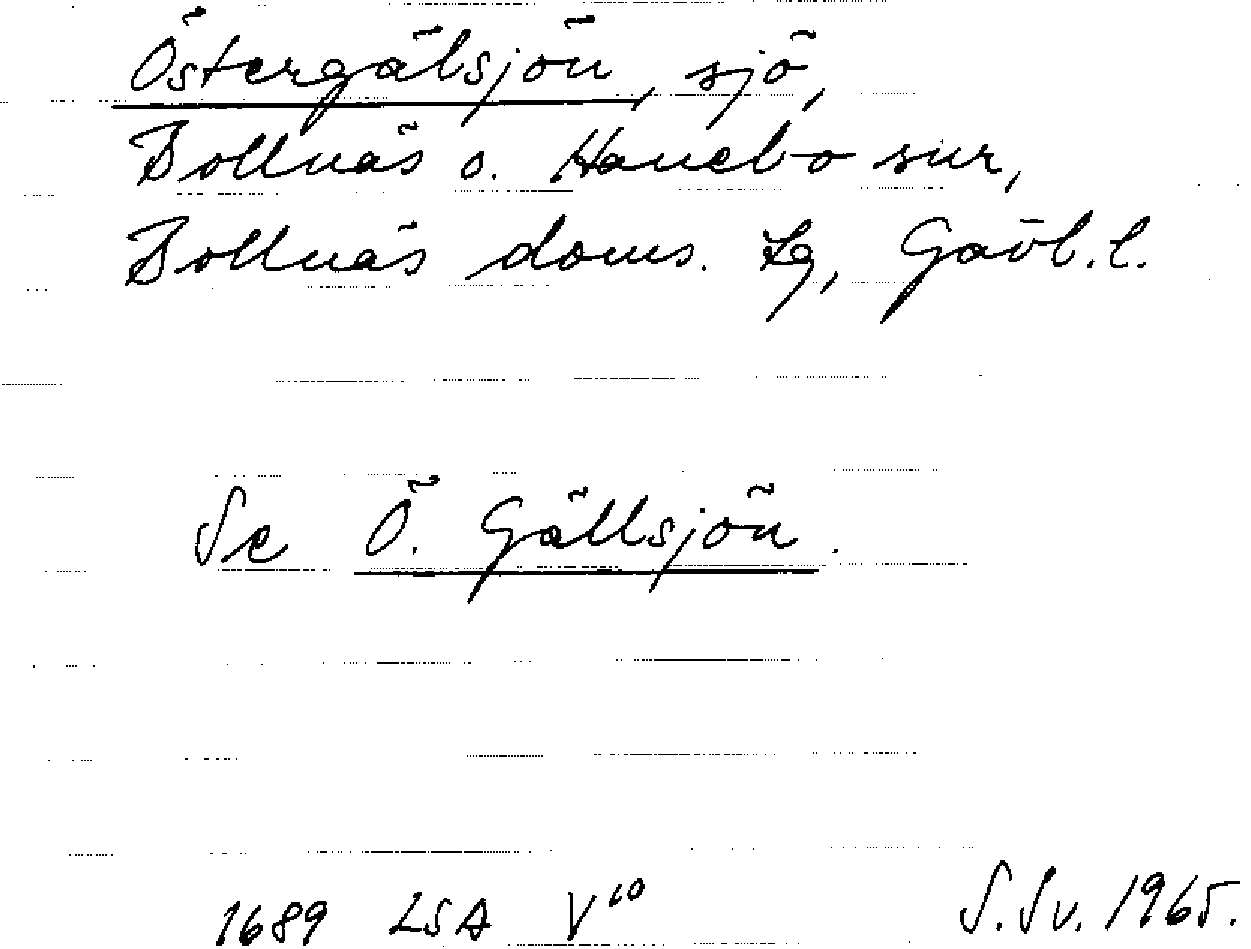 Östergälsjön, sjö,
Bollnäs o. Hanebo snr,
Bollnäs doms. Lg, Gävl.l.
Se Ö. Gällsjön.
1689 LSA V¹⁰ S.Sv. 1965.